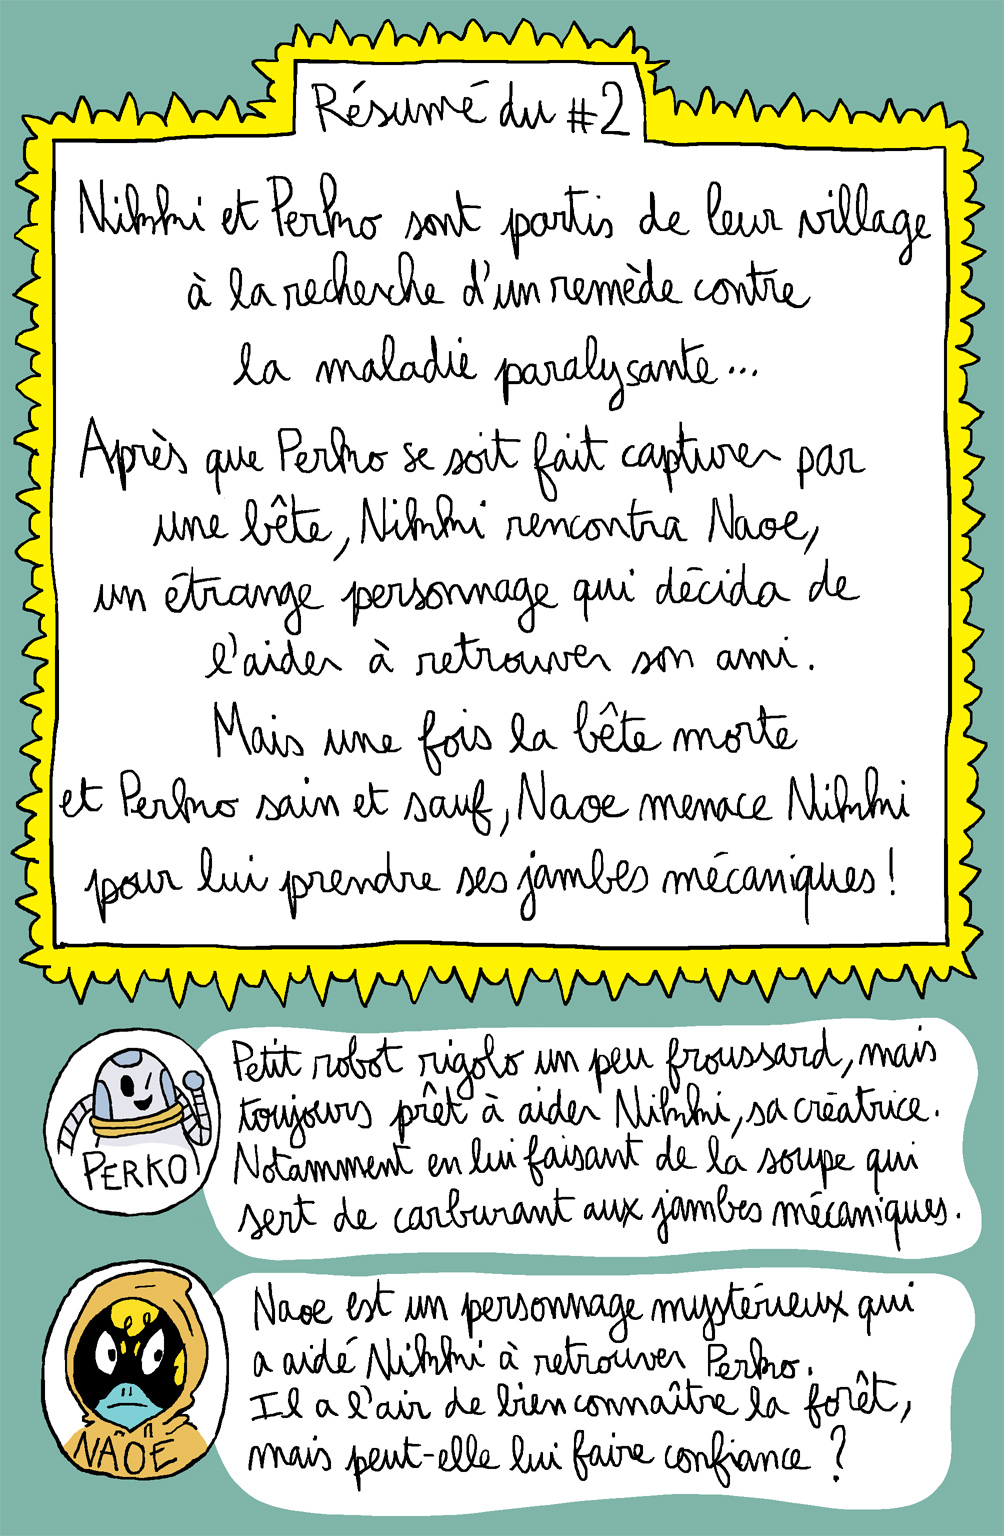 Résumé du #2
Nikki et Perko sont partis de leur village
à la recherche d'un remède contre
la maladie paralysante...
Après que Perko se soit fait capturer par
une bête, Nikki rencontra Naoe,
un étrange personnage qui décida de
l'aider à retrouver son ami.
Mais une fois la bête morte
et Perko sain et sauf, Naoe menace Nikki
pour lui prendre ses jambes mécaniques !
Petit robot rigolo un peu froussard, mais
toujours prêt à aider Nikki, sa créatrice.
Notamment en lui faisant de la soupe qui
sert de carburant aux jambes mécaniques.
PERKO
Naoe est un personnage mystérieux qui
a aidé Nikki à retrouver Perko.
Il a l'air de bien connaître la forêt,
mais peut-elle lui faire confiance ?
NAOË